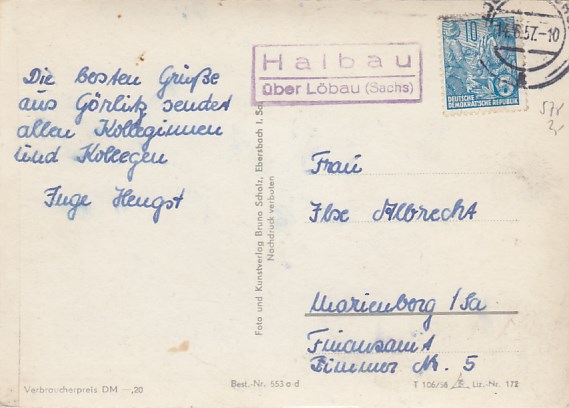 Die besten Grüße
aus Görlitz sendet
allen Kolleginnen
und Kollegen
Inge Hengst
Verbraucherpreis DM —,20
Foto und Kunstverlag Bruno Scholz, Ebersbach i. Sa.
Nachdruck verboten
Best.-Nr. 553 a-d
Halbau
über Löbau (Sachs)
DEUTSCHE
DEMOKRATISCHE REPUBLIK
.57.-10
Frau
Ilse Albrecht
Marienberg /Sa
Finanzamt
Zimmer Nr. 5
T 106/56 Liz.-Nr. 172